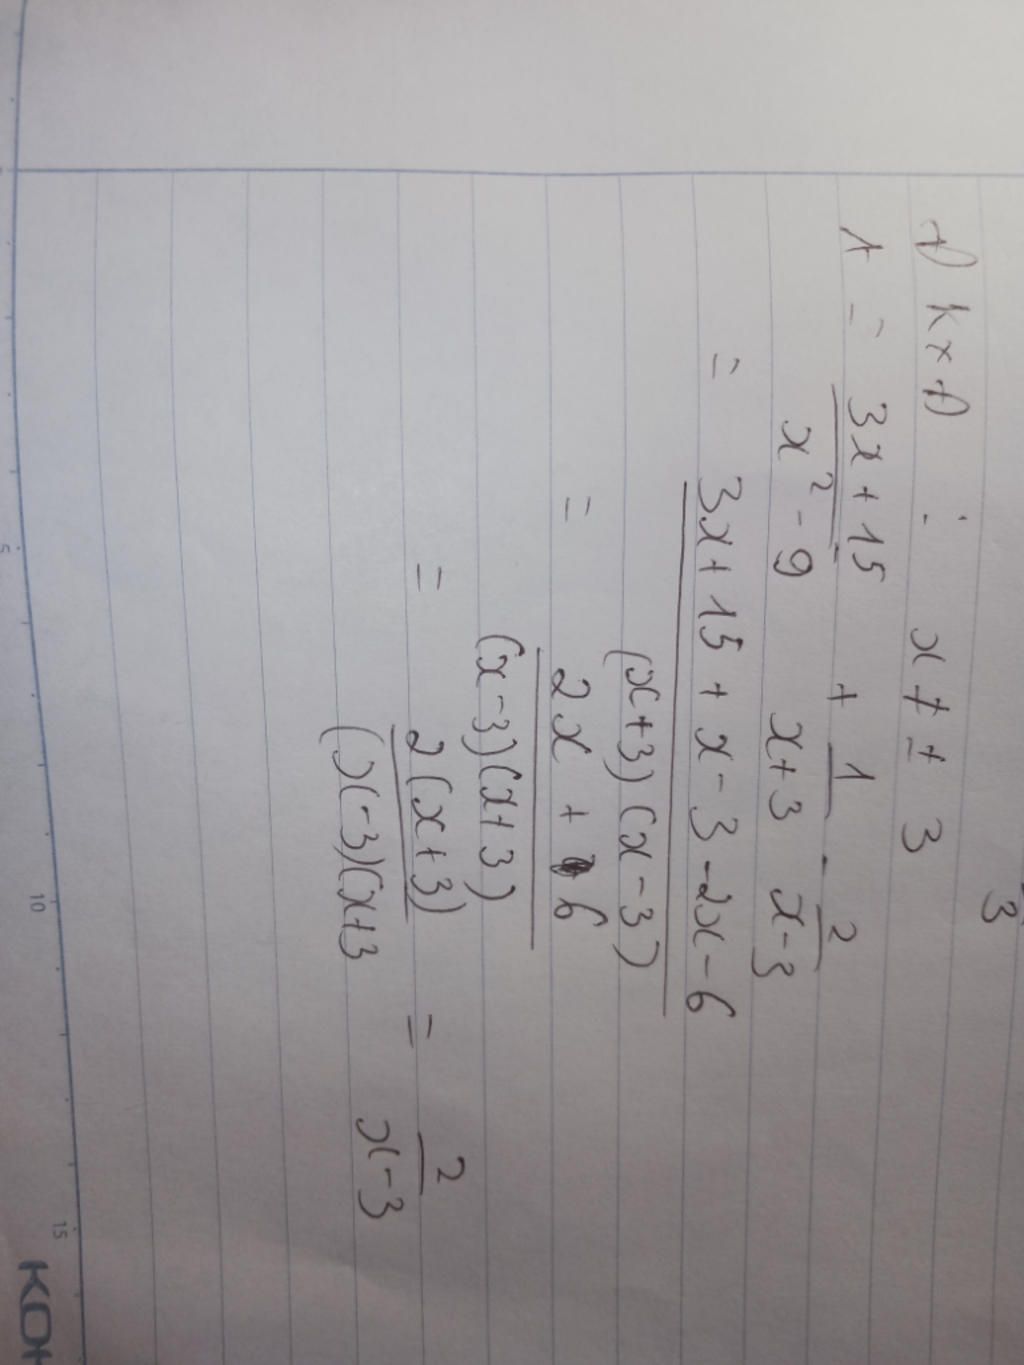 3
ĐKXĐ : x ≠ ± 3
A = \frac{3x+15}{x^2-9} + \frac{1}{x+3} - \frac{2}{x-3}
= \frac{3x+15+x-3-2x-6}{(x+3)(x-3)}
= \frac{2x+6}{(x-3)(x+3)}
= \frac{2(x+3)}{(x-3)(x+3} = \frac{2}{x-3}
5 10 15